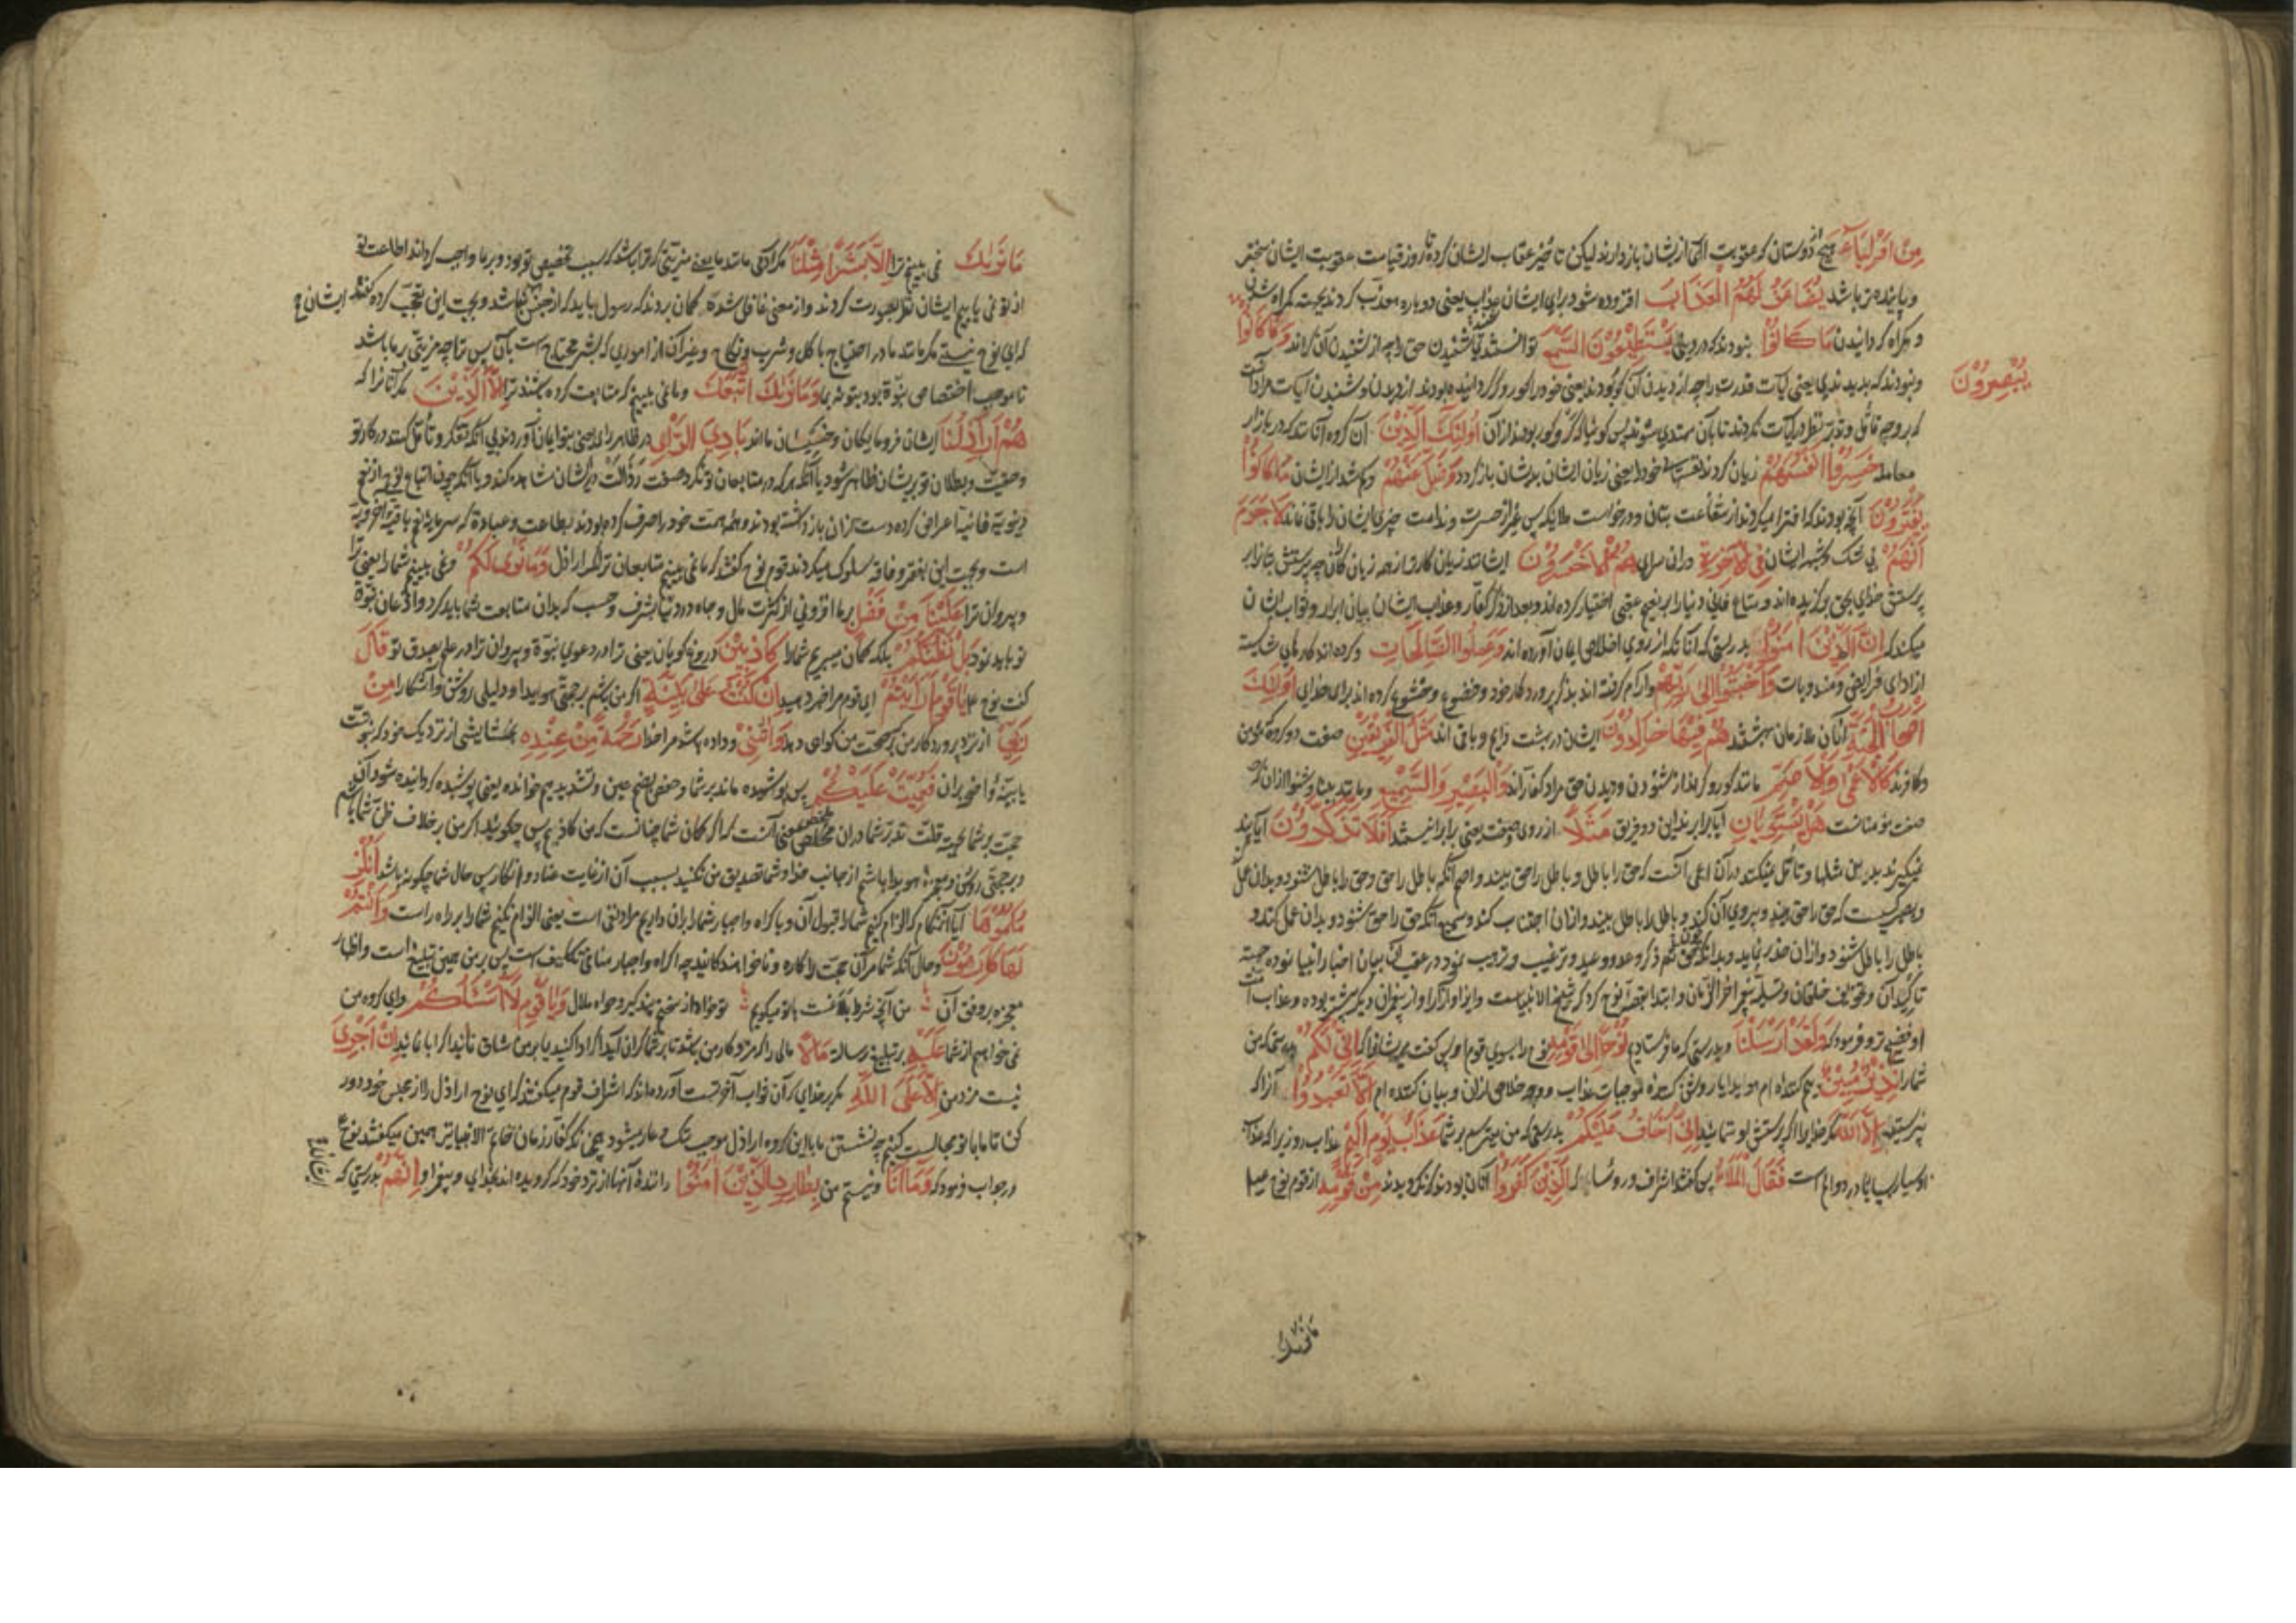 مِنْ اَوْلِیَآءَ هیچ از دوستان که عقوبت الله از ایشان بازدارند لیکن تاخیر عقاب ایشان کرده تا روز قیامت عقوبت ایشان سختر
و پاینده تر باشد یُضَاعَفُ لَهُمُ الْعَذَابُ افزوده شود برای ایشان عذاب یعنی دوباره معذب کردند بجهت کمراه شدن
و کمراه کردانیدن مَا كَانُوْا بنودند که در دنیا یَسْتَطِیْعُوْنَ السَّمْعَ توانستند شنیدن حق را چه از شنیدن آن کراند وَمَا كَانُوْا
یُبْصِرُوْنَ
و بنودند که بدیدندی یعنی آیات قدرت را چه از دیدن آن کور بودند یعنی خود را کور و کر کردانیده بودند از دیدن و شنیدن آیات
که بروجه تامل و تدبر نظر در آیات نکردند تا بآن مهتدی شوند پس کوئیا که کر و کور بودند از آن اُولٰئِكَ الَّذِیْنَ آن کروه آنانند که در بازار
معامله خَسِرُوْا اَنْفُسَهُمْ زیان کردند نفسهای خود را یعنی زیان ایشان بدیشان باز کردد وَضَلَّ عَنْهُمْ و کم شد از ایشان مَا كَانُوْا
یَفْتَرُوْنَ آنچه بودند که افترا میکردند از شفاعت بتان و درخواست ملایکه پس غیر از حسرت و ندامت چیزی ایشان را باقی نماند لَا جَرَمَ
اَنَّهُمْ بی شک و شبه ایشان فِی الْاٰخِرَةِ در آن سرای هُمُ الْاَخْسَرُوْنَ ایشانند زیان کارتر از همه زیان کاران چه پرستش بتان را بر
پرستش خدای بحق برکزیده اند و متاع فانی دنیا را بر نعیم عقبی اختیار کرده اند و بعد از ذکر کفار و عذاب ایشان بیان ابرار و ثواب ایشان
میکند که اِنَّ الَّذِیْنَ اٰمَنُوْا بدرستی که آنانکه از روی اخلاص ایمان آورده اند وَعَمِلُوا الصّٰلِحَاتِ و کرده اند کارهای شایسته
از ادای فرایض و مندوبات وَاَخْبَتُوْا اِلٰی رَبِّهِمْ و آرام کرفته اند بذکر پروردکار خود و خضوع و خشوع کرده اند برای خدای اُولٰئِكَ
اَصْحَابُ الْجَنَّةِ آنان ملازمان بهشتند هُمْ فِیْهَا خَالِدُوْنَ ایشان در بهشت دایم و باقی اند مَثَلُ الْفَرِیْقَیْنِ صفت دو کروه مؤمن
و کافرند كَالْاَعْمٰی وَالْاَصَمِّ مانند کور و کرند از شنودن و دیدن حق مراد کفارند وَالْبَصِیْرِ وَالسَّمِیْعِ و مانند بینا و شنوا
صفت مؤمنانست هَلْ یَسْتَوِیَانِ آیا برابرند این دو فریق مَثَلًا از روی صفت یعنی برابر نیستند اَفَلَا تَذَكَّرُوْنَ آیا پند
نمیکیرید بدین مثلها و تامل نمیکنید در آن اعمی آنست که حق را باطل و باطل را حق بیند و اصم آنکه باطل را حق و حق را باطل شنود و بدان عمل
و بصیر کسیست که حق را حق بیند و پیروی آن کند و باطل را باطل بیند و از آن اجتناب کند و سمیع آنکه حق را حق شنود و بدان عمل کند و
باطل را باطل شنود و از آن حذر نماید و بدانکه چون حق ذکر وعد و وعید و ترغیب و ترهیب نمود در عقب آن بیان اخبار انبیا نموده جهت
تاکید آن و تخویف خلقان و تسلیه پیغمبر آخر الزمان و ابتدا بقصه نوح کرد که شیخ الانبیاست و ایذاء و آزار او از پیغمبران دیکر بیشتر بوده و عذاب
او و فرمود که وَلَقَدْ اَرْسَلْنَا و بدرستی که ما فرستادیم نُوْحًا اِلٰی قَوْمِهِ نوح را بسوی قوم او پس کفت مر ایشانرا که اِنِّیْ لَكُمْ بدرستی که من
شما را نَذِیْرٌ مُبِیْنٌ بیم کننده ام هویدا یا روشن کننده موجبات عذاب و وجه خلاصی از آن و بیان کننده ام اَلَّا تَعْبُدُوْا آنرا که
نپرستید اِلَّا اللّٰهَ مکر خدایرا اکر پرستش او ننمائید اِنِّیْ اَخَافُ عَلَیْكُمْ بدرستی که من میترسم بر شما عَذَابَ یَوْمٍ اَلِیْمٍ عذاب روزی را که عذاب
او بسیار بسیار دردناکست فَقَالَ الْمَلَاُ پس کفتند اشراف و رؤسا که الَّذِیْنَ كَفَرُوْا آنان بودند که نکرویدند مِنْ قَوْمِهِ از قوم نوح
مَا نَرٰیكَ
مَا نَرٰیكَ نمی بینیم ترا اِلَّا بَشَرًا مِثْلَنَا مکر آدمی مانند ما یعنی مزیتی که ترا باشد که سبب تخصیص تو بود و بر ما واجب کرداند اطاعت تو
از تو نمی یابیم ایشان نظر بصورت کردند و از معنی غافل شده کمان بردند که رسول باید که از جنس باشد و بجهت این تعجب کرده کفتند ایشان
که ای نوح نیستی مکر مانند ما در احتیاج باکل و شرب و نکاح و غیر آن از اموری که بشر محتاج است بآن پس ترا چه مزیتی بر ما باشد
تا موجب اختصاص نبوة بود بتو نه بما وَمَا نَرٰیكَ اتَّبَعَكَ و ما نمی بینیم که متابعت کرده باشند ترا اِلَّا الَّذِیْنَ مکر آنانرا که
هُمْ اَرَاذِلُنَا ایشان فرومایکان و خسیسان ما اند بَادِیَ الرَّاْیِ در ظاهر رای یعنی بتو ایمان آوردند بی آنکه تفکر و تامل کنند در کار تو
و حقیت و بطلان تو بریشان ظاهر شود یا آنکه هر که در متابعان تو نکرد صفت رذالت در ایشان مشاهده کند و با آنکه چون اتباع نوح از
دنیویه فانیه اعراض کرده دست از آن باز داشته بودند و همه همت خود را صرف کرده بودند بطاعت و عبادة که سرمایه نعیم باقیه اخرویه
است و بجهت این بفقر و فاقه سلوک میکردند قوم نوح کفتند که ما نمی بینیم متابعان ترا مکر اراذل وَمَا نَرٰی لَكُمْ و نمی بینیم شما را یعنی ترا
و پیروان ترا عَلَیْنَا مِنْ فَضْلٍ بر ما افزونی از کثرت مال و جاه در دنیا و شرف و حسب که بدان متابعت شما باید کرد و اذعان نبوة
تو باید نمود بَلْ نَظُنُّكُمْ بلکه کمان میبریم شما را كَاذِبِیْنَ دروغ کویان یعنی ترا در دعوی نبوة و پیروان ترا در علم بصدق تو قَالَ
کفت نوح یَا قَوْمِ اَرَاَیْتُمْ ای قوم مرا خبر دهید اِنْ كُنْتُ عَلٰی بَیِّنَةٍ اکر من باشم بر حجتی هویدا و دلیلی روشن و آشکارا مِنْ
رَبِّیْ از نزد پروردکار من که بر صحت من کواهی دهد وَاٰتٰنِیْ و داده باشد مرا خدا رَحْمَةً مِنْ عِنْدِهِ بخشایشی از نزدیک خود که نبوت
فَعُمِّیَتْ عَلَیْكُمْ پس پوشیده ماند بر شما و حفص بضم عین و تشدید میم خوانده یعنی پوشیده کردانیده شود آن
حجت بر شما بجهت قلت تدبر شما در آن ملخص معنی آنست که اکر کمان شما چنانست که من کاذبم پس چکوئید اکر من بر خلاف ظن شما باشم
و بر حجتی روشن و معجزه هویدا باشم از جانب خدا و شما تصدیق من نکنید بسبب آن از غایت عناد و انکار پس حال شما چکونه باشد اَنُلْزِ
مُكُمُوْهَا آیا الزام کنیم شما را بقبول آن و باکراه و اجبار شما را بران داریم مراد نفی است یعنی الزام نکنیم شما را براه راست وَاَنْتُمْ
لَهَا كَارِهُوْنَ و حال آنکه شما مر آن حجت را کاره و ناخواهند کانید چه اکراه و اجبار منافی تکلیف است پس بر من همین تبلیغ است و اظهار
معجزه بر وفق آن من آنچه شرط بلاغست با تو میکویم تو خواه از سخنم پند کیر و خواه ملال وَیَا قَوْمِ لَا اَسْئَلُكُمْ و ای کروه من
نمی خواهم از شما عَلَیْهِ بر تبلیغ رسالة مَالًا مالی را که مزد کار من باشد تا بر شما کران آید اکر ادا کنید یا بر من شاق باشد اکر ابا نمائید اِنْ اَجْرِیَ
نیست مزد من اِلَّا عَلَی اللّٰهِ مکر بر خدای که آن ثواب آخرتست آورده اند که اشراف قوم میکفتند که ای نوح اراذل را از مجلس خود دور
کن تا ما با تو مجالست کنیم چه نشستن ما با این کروه اراذل موجب ننک و عار میشود همچنانکه کفار زمان خاتم الانبیا نیز همین میکفتند نوع
در جواب فرمود که وَمَا اَنَا و نیستم من بِطَارِدِ الَّذِیْنَ اٰمَنُوْا راننده آنها از نزد خود که کرویده اند بخدای و پیغمبر او اِنَّهُمْ بدرستی که